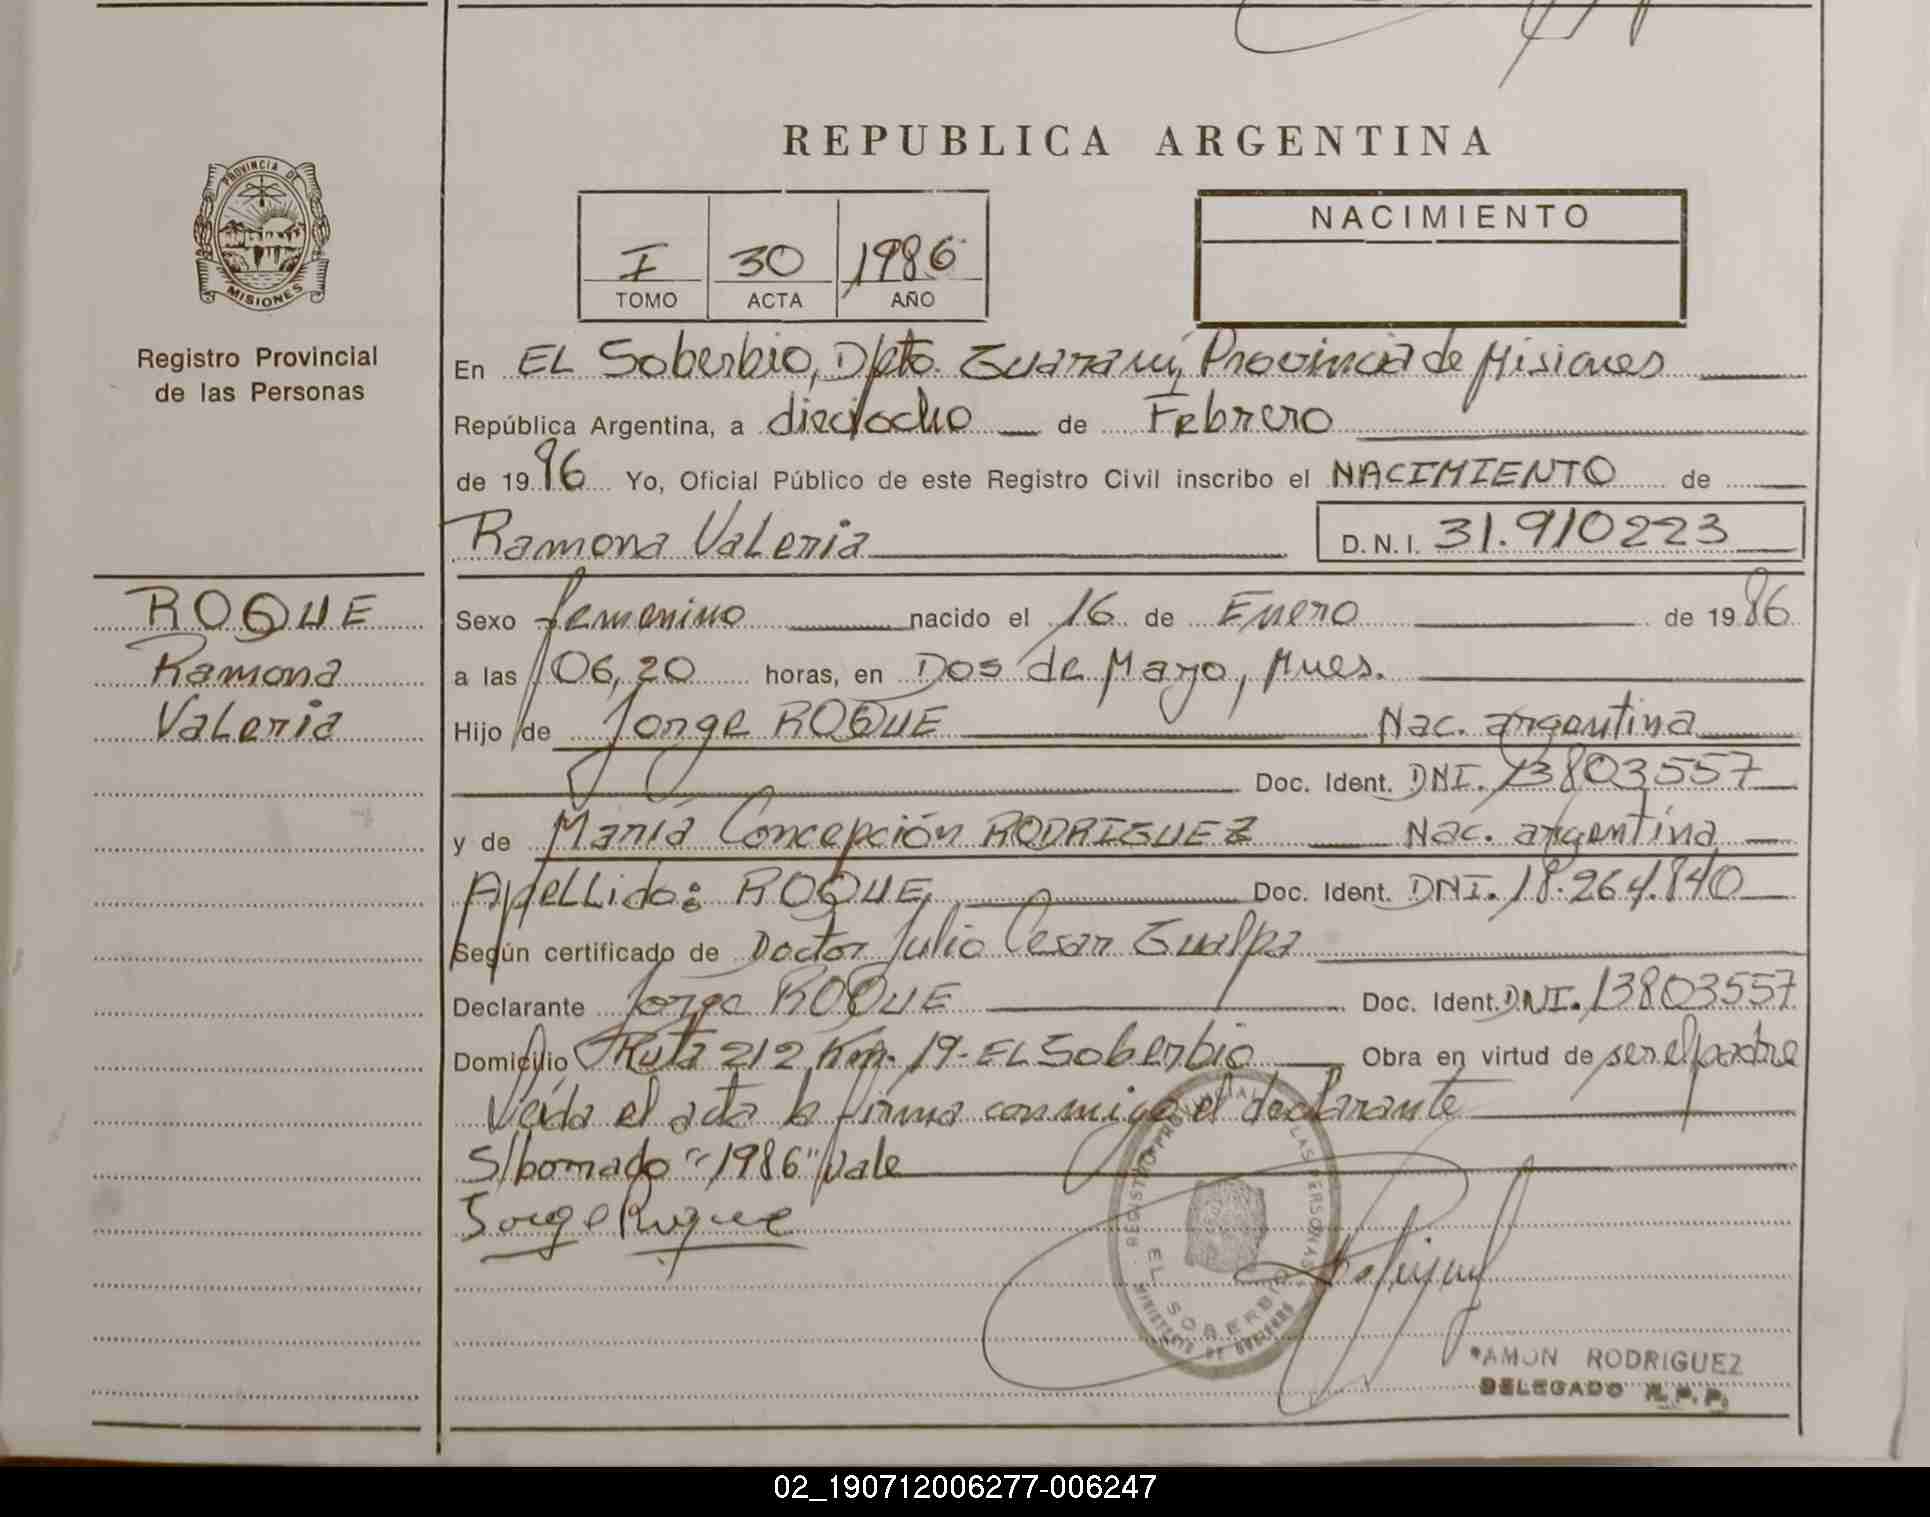 REPUBLICA ARGENTINA
PROVINCIA DE
MISIONES
Registro Provincial
de las Personas
I 30 1986
TOMO ACTA AÑO
NACIMIENTO
En EL Soberbio, Dpto. Guaraní, Provincia de Misiones
República Argentina, a dieciocho de Febrero
de 1986 Yo, Oficial Público de este Registro Civil inscribo el NACIMIENTO de
Ramona Valeria D.N.I. 31.910223
ROQUE
Ramona
Valeria
Sexo femenino nacido el 16 de Enero de 1986
a las 06,20 horas, en Dos de Mayo, Mnes.
Hijo de Jorge ROQUE Nac. argentina
Doc. Ident. DNI. 13803557
y de María Concepción RODRIGUEZ Nac. argentina
Apellido: ROQUE Doc. Ident. DNI. 18.264.840
Según certificado de Doctor Julio Cesar Gualpa
Declarante Jorge ROQUE Doc. Ident. DNI. 13803557
Domicilio Ruta 212 Km. 19- EL Soberbio Obra en virtud de ser el padre
Leída el acta la firma conmigo el declarante
S/borrado "1986" vale
Jorge Roque
REGISTRO PROVINCIAL DE LAS PERSONAS
EL SOBERBIO
MINISTERIO DE GOBIERNO
RAMON RODRIGUEZ
DELEGADO R.P.P.
02_190712006277-006247